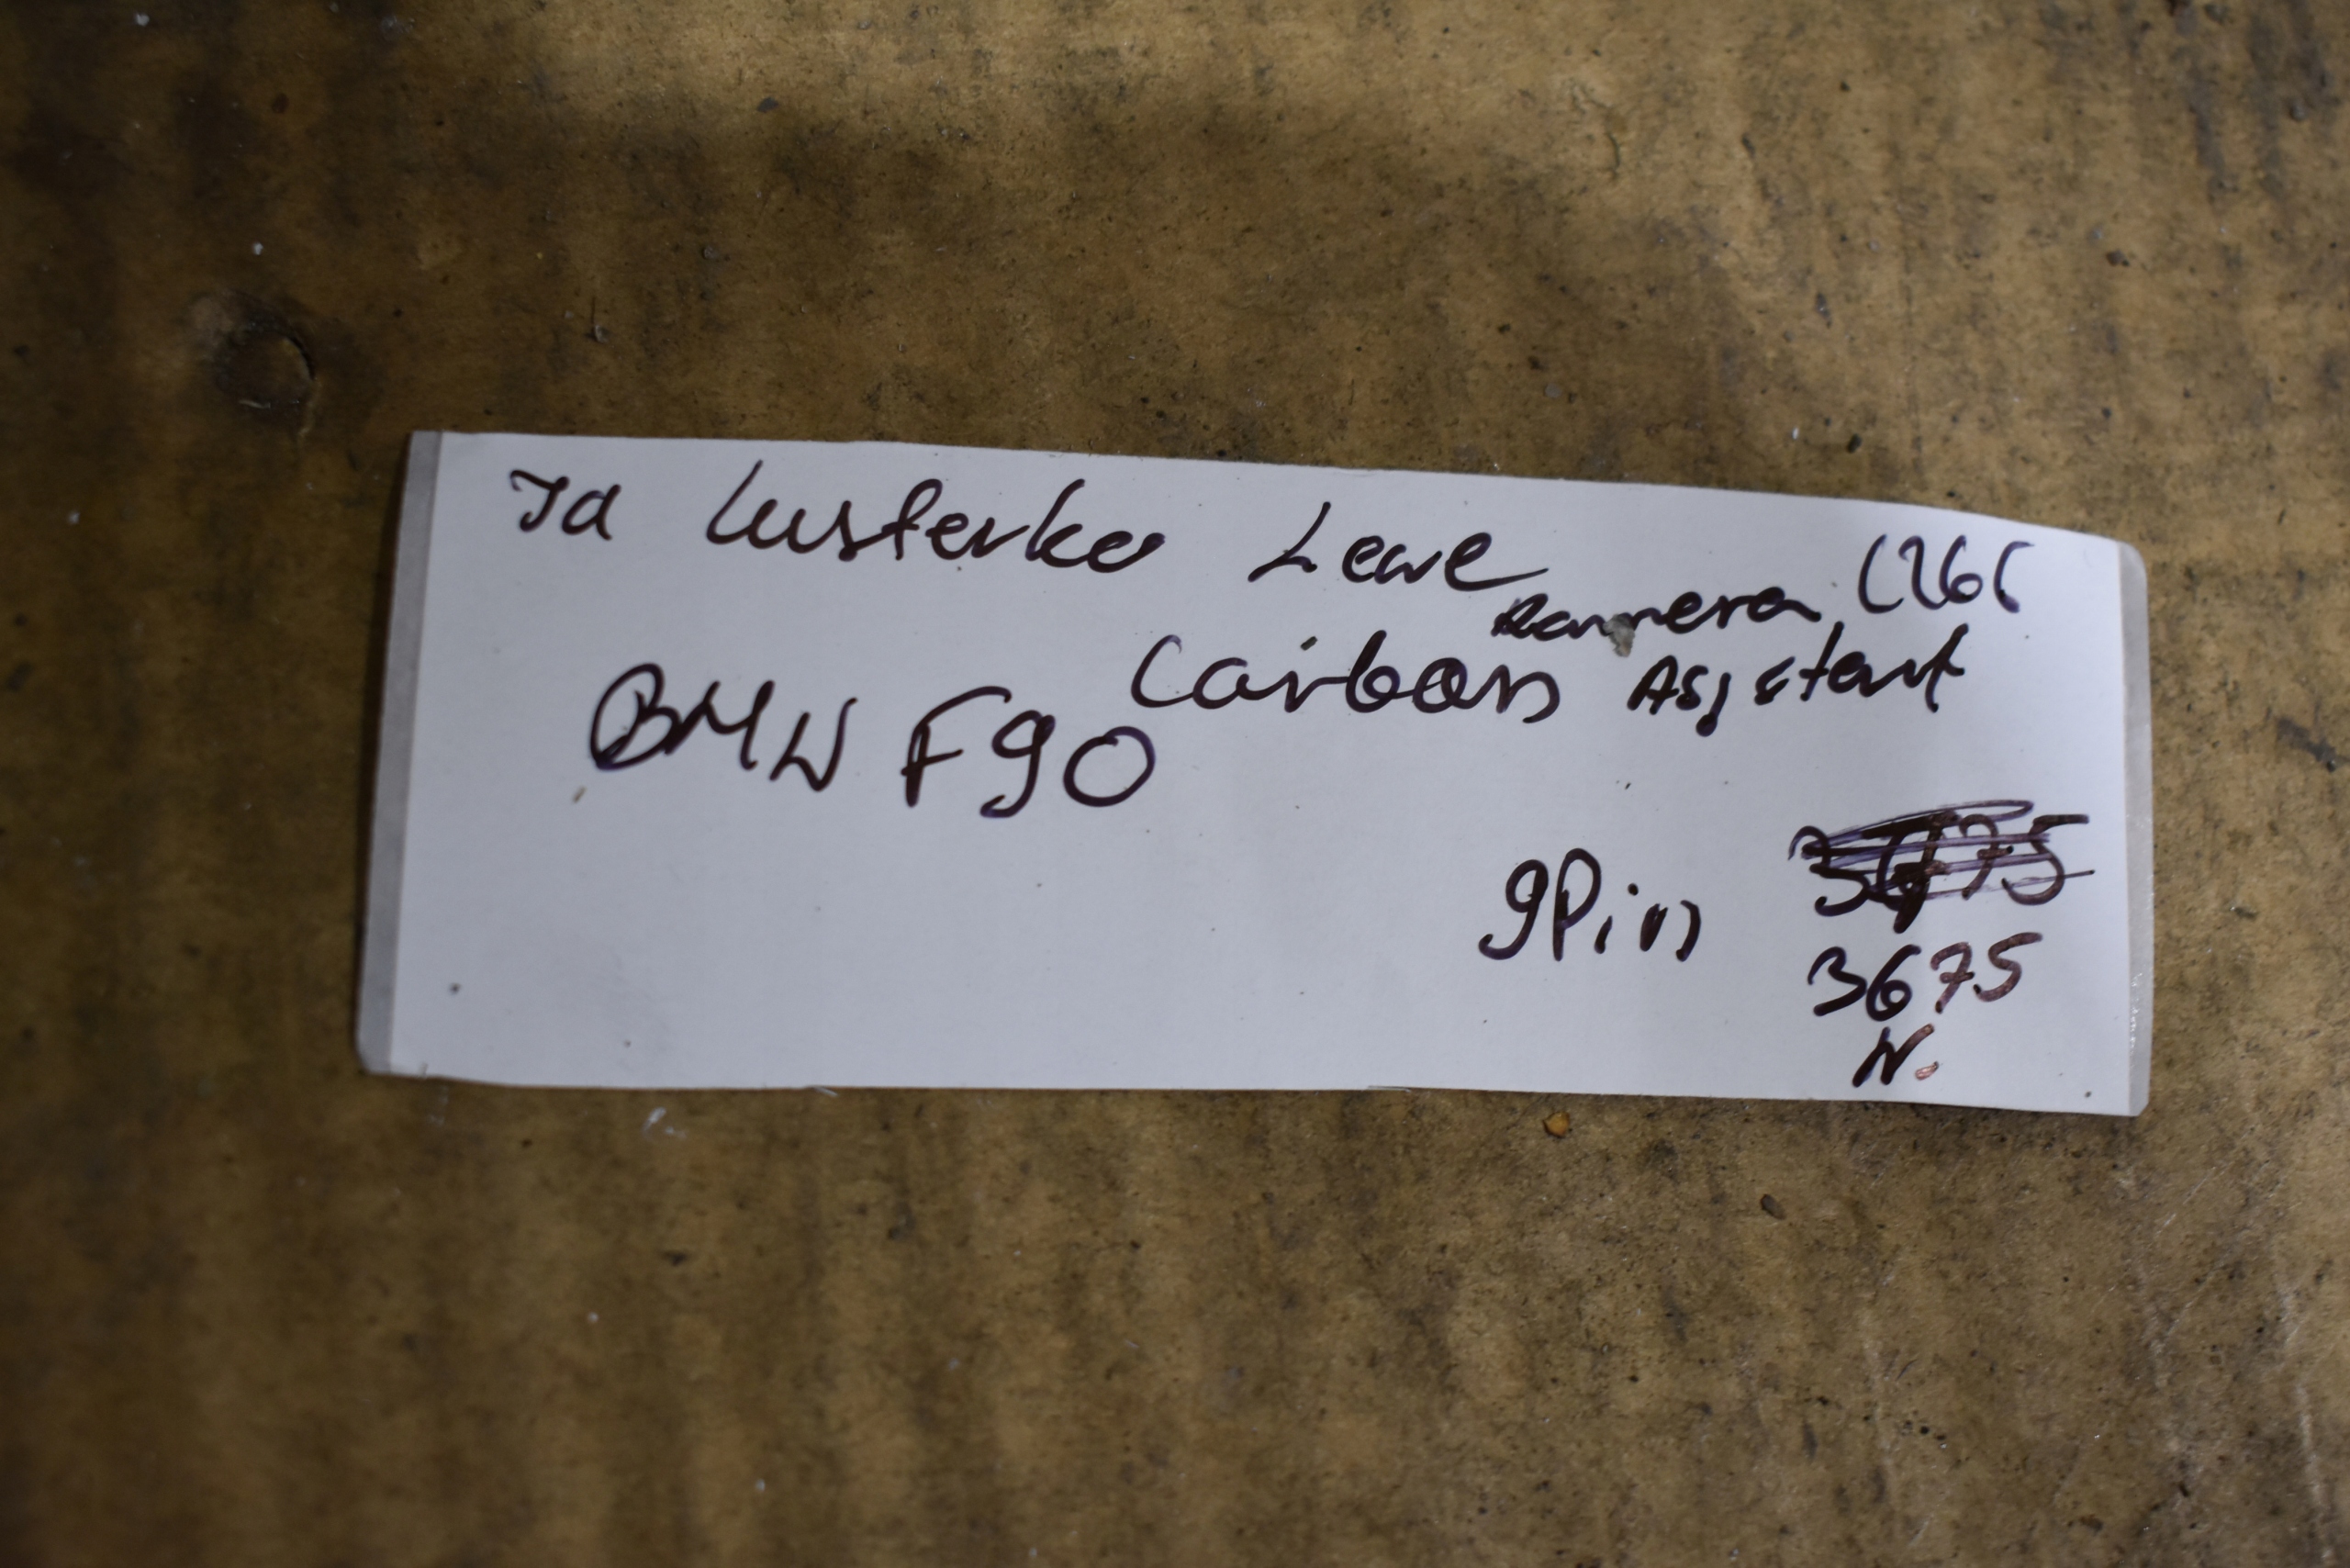 Id Lusterko Lewe
Kamera C26C
Carbon Asystent
BMW F90
9Pin
3675
N.